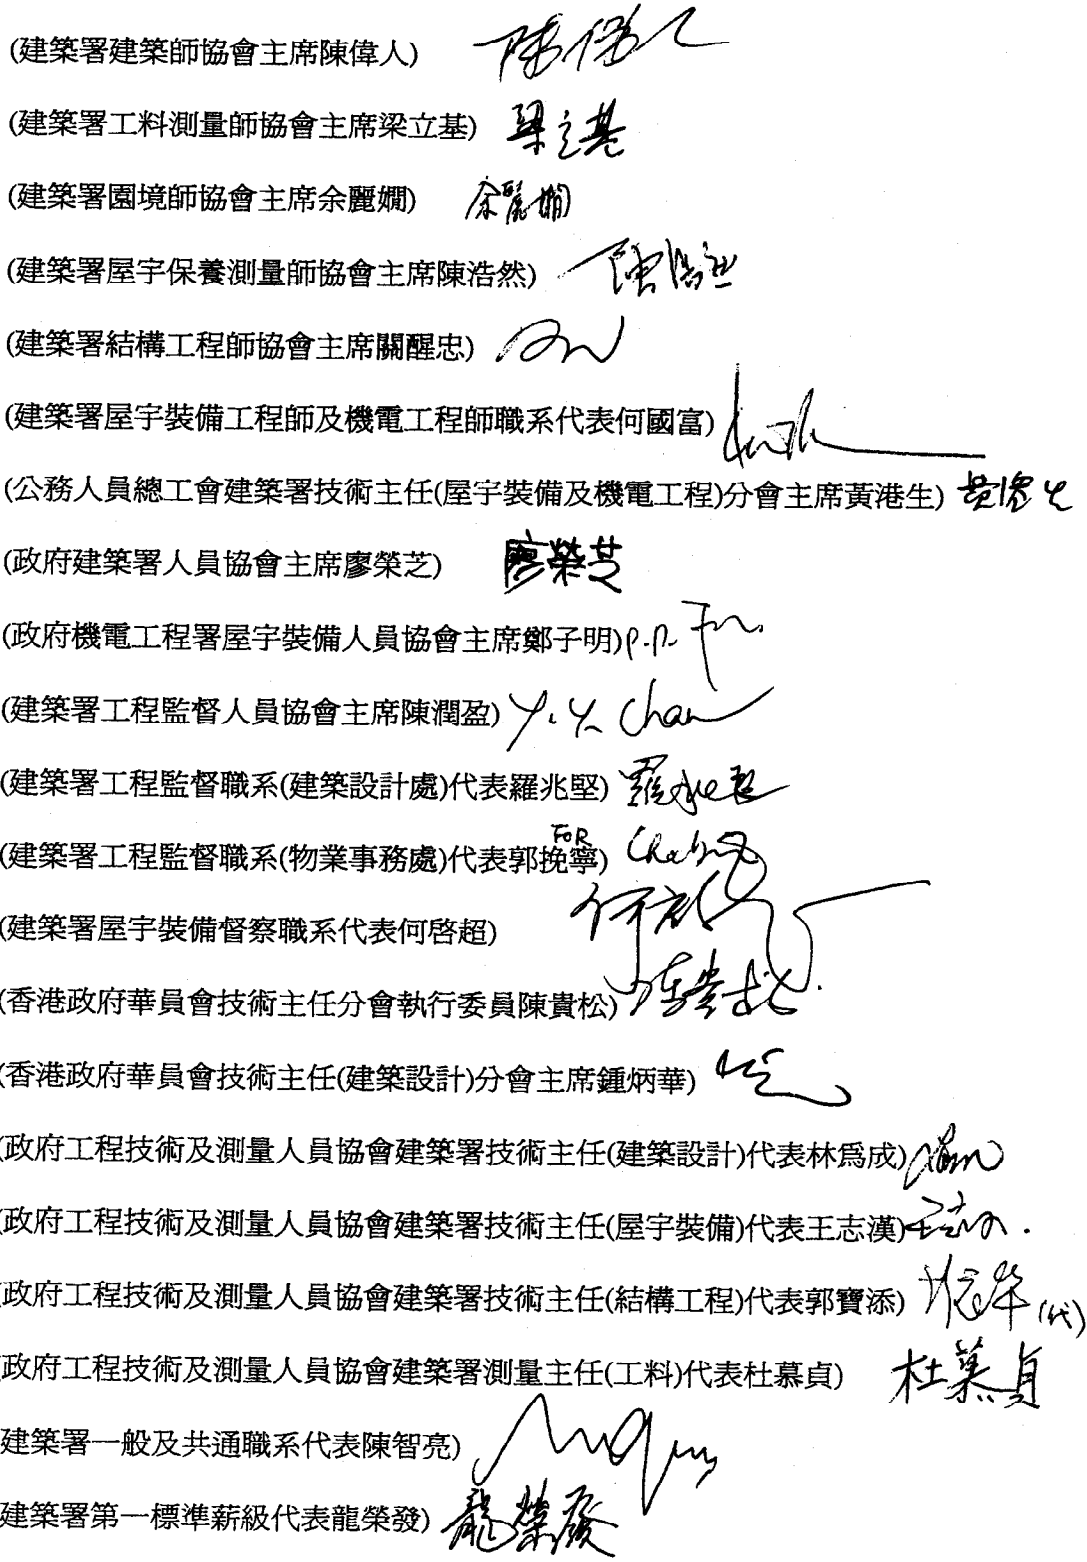 (建築署建築師協會主席陳偉人) 陳偉人
(建築署工料測量師協會主席梁立基) 梁立基
(建築署園境師協會主席余麗嫺) 余麗嫺
(建築署屋宇保養測量師協會主席陳浩然) 陳浩然
(建築署結構工程師協會主席關醒忠)
(建築署屋宇裝備工程師及機電工程師職系代表何國富)
(公務人員總工會建築署技術主任(屋宇裝備及機電工程)分會主席黃港生) 黃港生
(政府建築署人員協會主席廖榮芝) 廖榮芝
(政府機電工程署屋宇裝備人員協會主席鄭子明) p.p.
(建築署工程監督人員協會主席陳潤盈) Y. Y. Chan
(建築署工程監督職系(建築設計處)代表羅兆堅) 羅兆堅
(建築署工程監督職系(物業事務處)代表郭挽寧) FOR
(建築署屋宇裝備督察職系代表何啓超) 何啟
(香港政府華員會技術主任分會執行委員陳貴松) 陳貴松
(香港政府華員會技術主任(建築設計)分會主席鍾炳華)
(政府工程技術及測量人員協會建築署技術主任(建築設計)代表林爲成)
(政府工程技術及測量人員協會建築署技術主任(屋宇裝備)代表王志漢) 王志漢
(政府工程技術及測量人員協會建築署技術主任(結構工程)代表郭寶添) (代)
政府工程技術及測量人員協會建築署測量主任(工料)代表杜慕貞) 杜慕貞
建築署一般及共通職系代表陳智亮)
建築署第一標準薪級代表龍榮發) 龍榮發